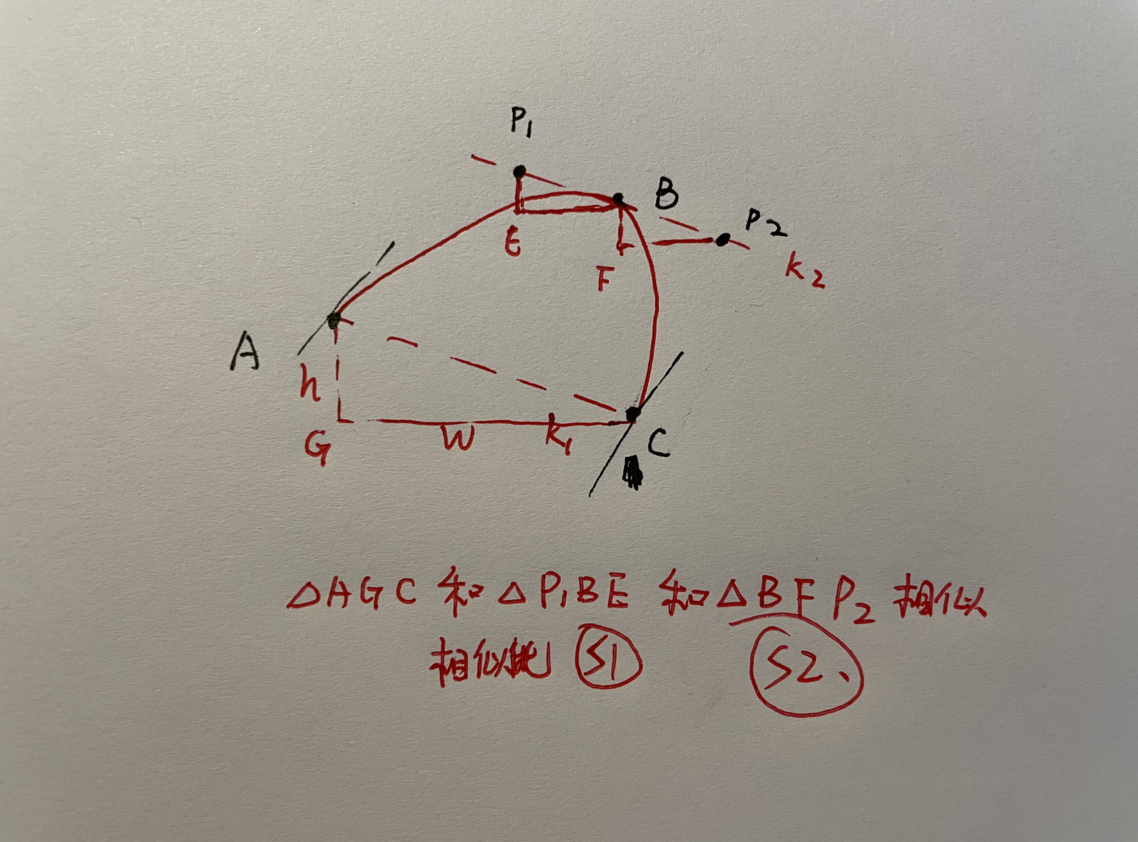 P1
B
P2
E
F
k2
A
h
G
W
k1
C
△AGC 和 △P1BE 和 △BFP2 相似
相似比 S1 S2、